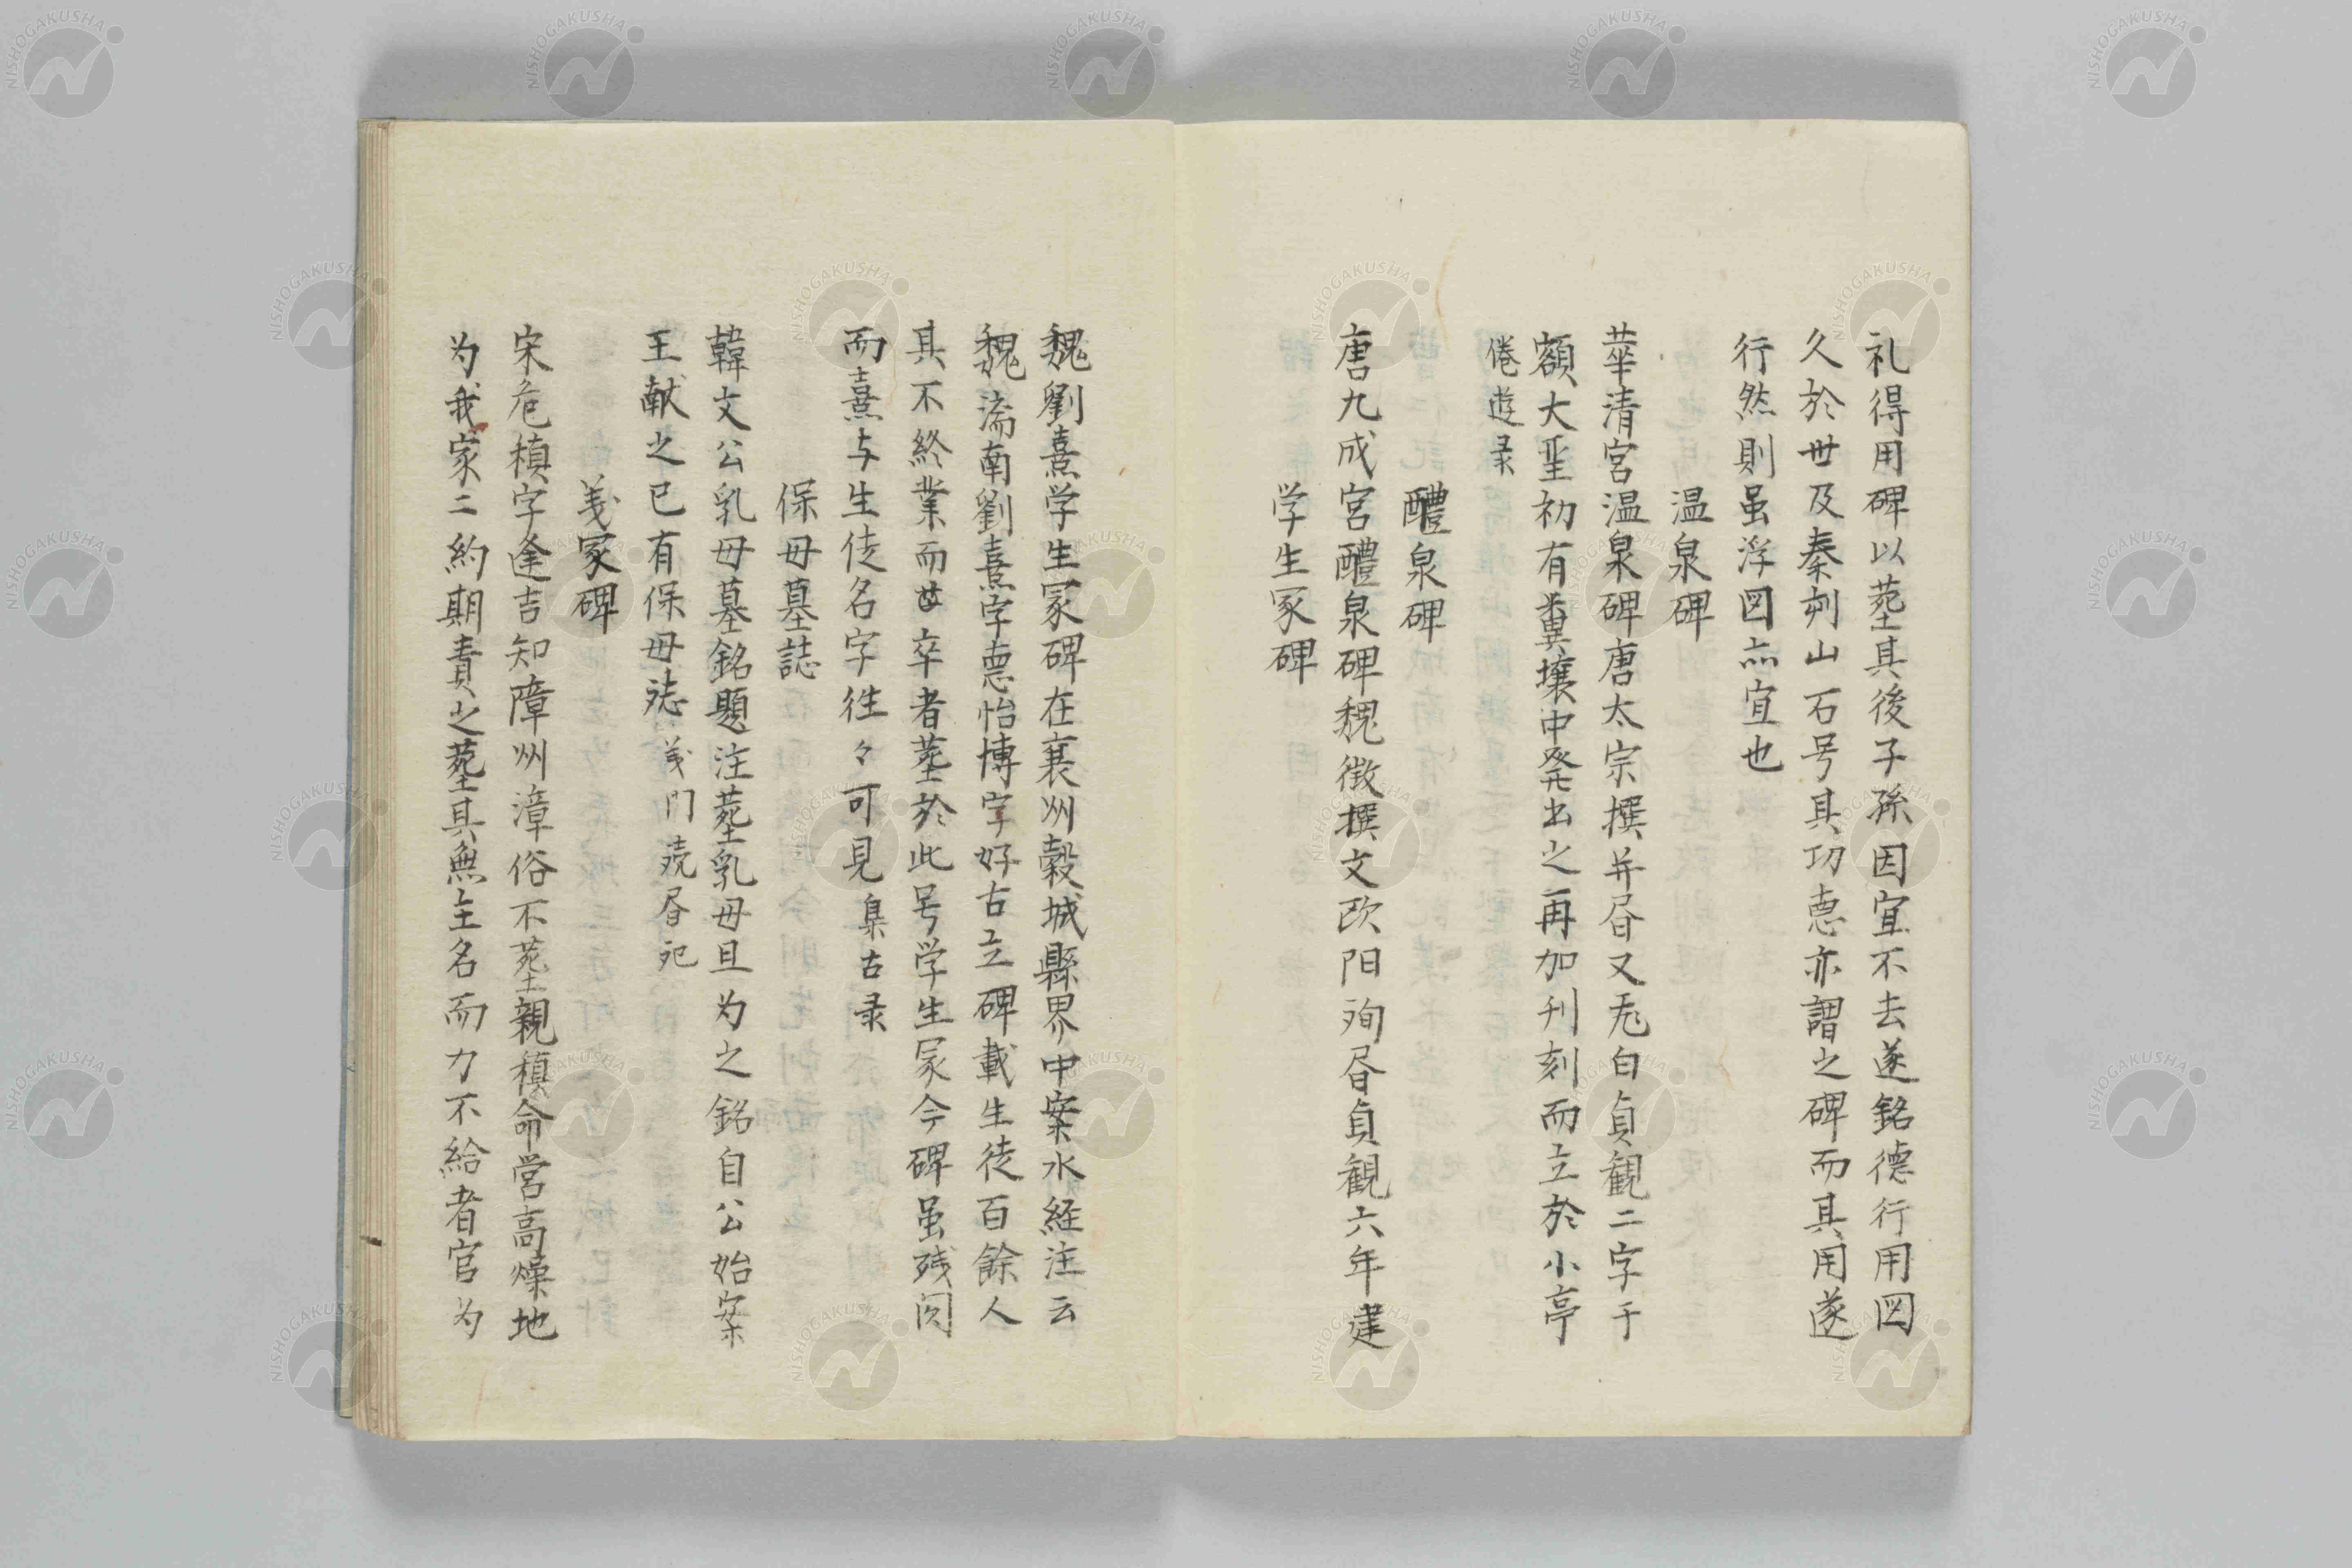 礼得用碑以葬其後子孫因宜不去遂銘徳行用図
久於世及秦刺山石号其功徳亦謂之碑而其用遂
行然則虽浮図亦宜也
温泉碑
華清宮温泉碑唐太宗撰并昼又飛白貞観二字于
額大聖初有糞壌中発出之再加刊刻而立於小亭
倦遊录
醴泉碑
唐九成宮醴泉碑魏徴撰文欧阳殉昼貞観六年建
学生冢碑
魏劉熹学生冢碑在襄州穀城縣界中案水経注云
魏濡南劉熹字徳怡博字好古立碑載生徒百餘人
其不終業而卒者葬於此号学生冢今碑虽残闕
而熹与生徒名字徃々可見集古录
保母墓誌
韓文公乳母墓銘題注葬乳母且为之銘自公始案
王献之已有保母誌 義门読昼記
義冢碑
宋危稹字逢吉知障州漳俗不葬親稹命営高燥地
为我冢二約期責之葬其無主名而力不給者官为
NISHOGAKUSHA